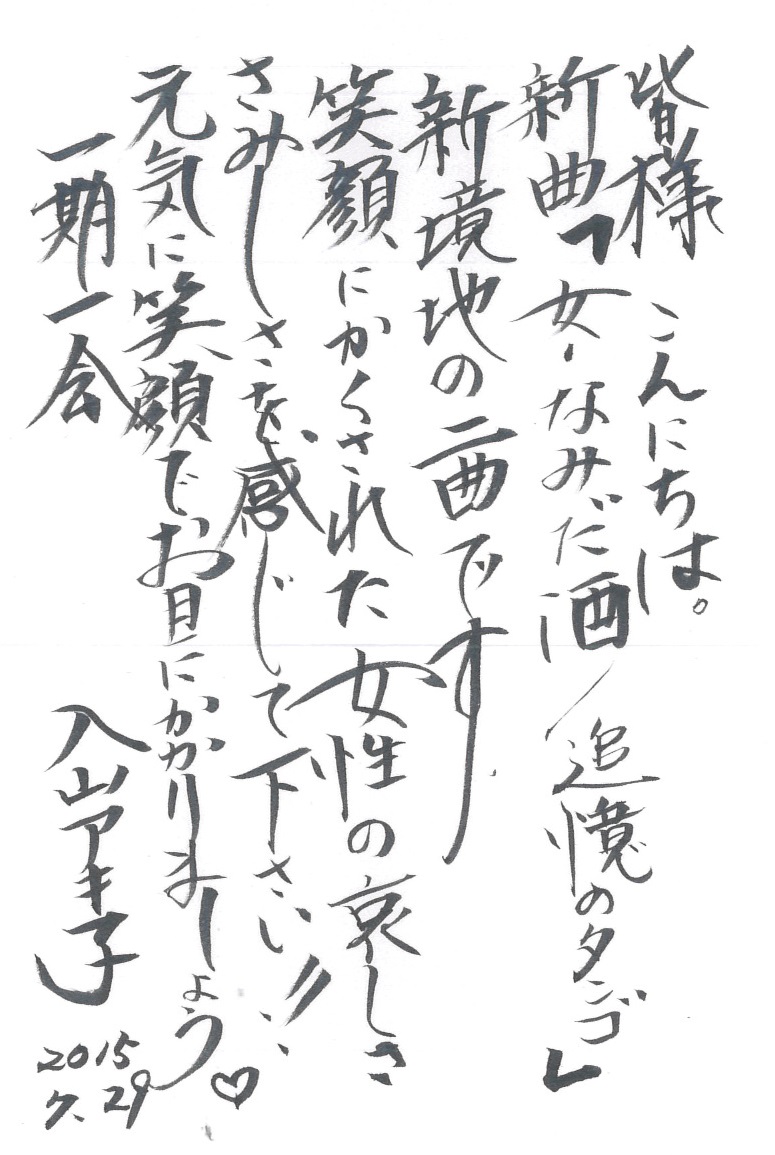 皆様 こんにちは。
新曲「女のなみだ酒/追憶のタンゴ」
新境地の二曲です
笑顔にかくされた女性の哀しさ
さみしさを感じて下さい!!
元気に笑顔でお目にかかりましょう♡
一期一会
入山アキ子
2015
7.29